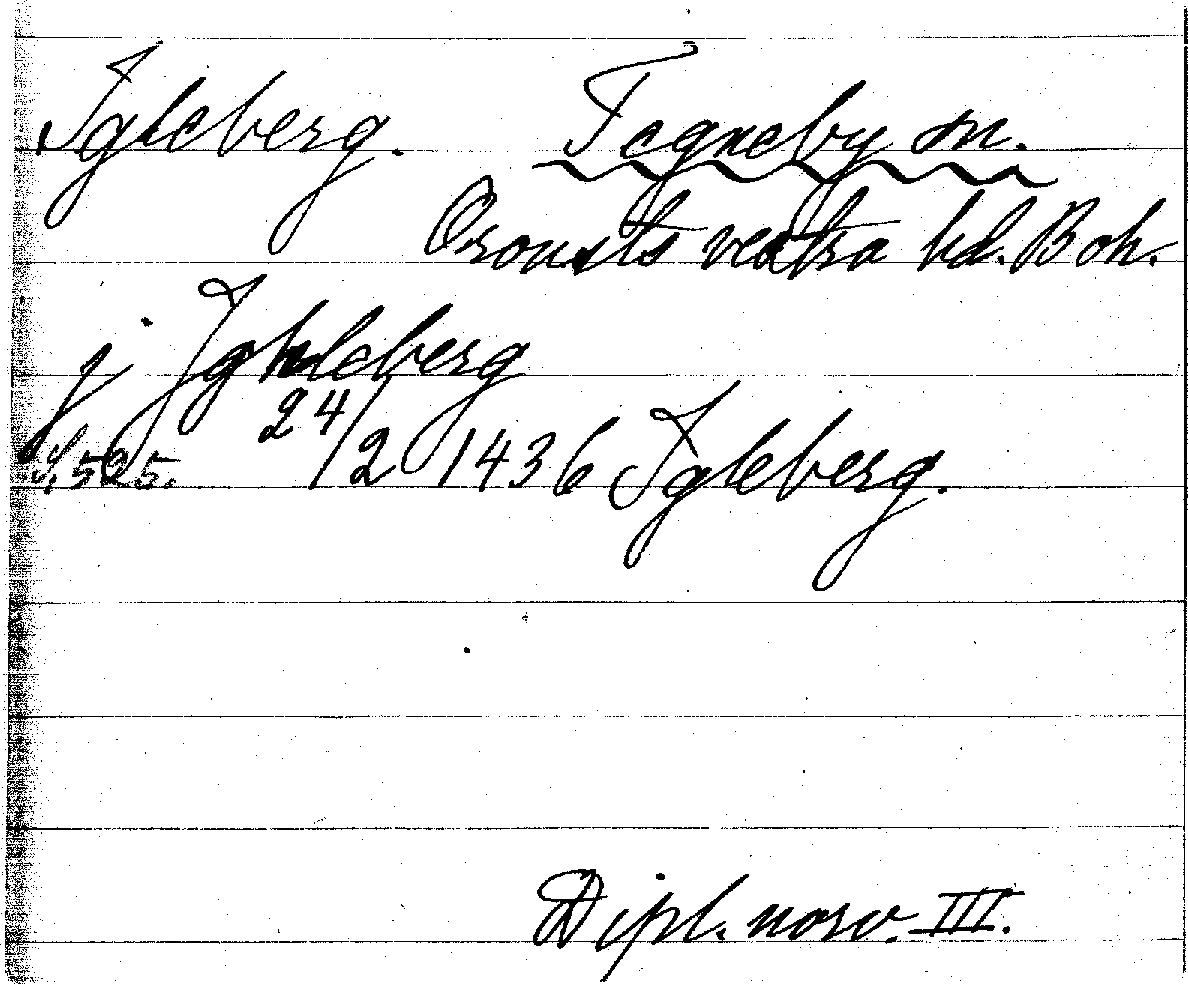 Igleberg. Tegneby sn.
Orousts vestra hd. Boh.
j Ighleberg
24/2 1436 Igleberg.
s. 525.
Dipl. norv. III.